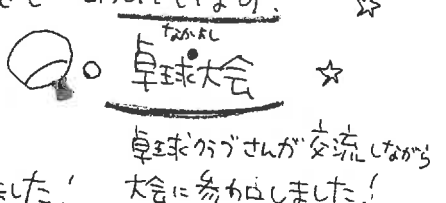 なかよし
卓球大会
卓球クラブさんが交流しながら
ました! 大会に参加しました!